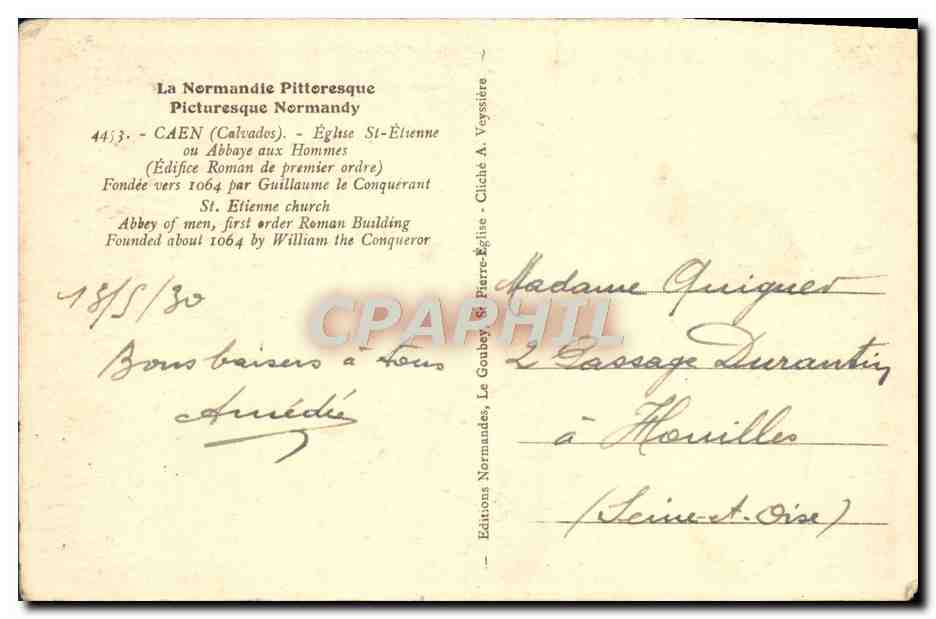 La Normandie Pittoresque
Picturesque Normandy
4453. - CAEN (Calvados). - Église St-Étienne
ou Abbaye aux Hommes
(Édifice Roman de premier ordre)
Fondée vers 1064 par Guillaume le Conquérant
St. Etienne church
Abbey of men, first order Roman Building
Founded about 1064 by William the Conqueror
18/5/30
Bons baisers à tous
Amédée
— Editions Normandes, Le Goubey, St Pierre-Église - Cliché A. Veyssière —
Madame Quiguer
2 Passage Durantin
à Houilles
(Seine-et-Oise)
CPAPHIL